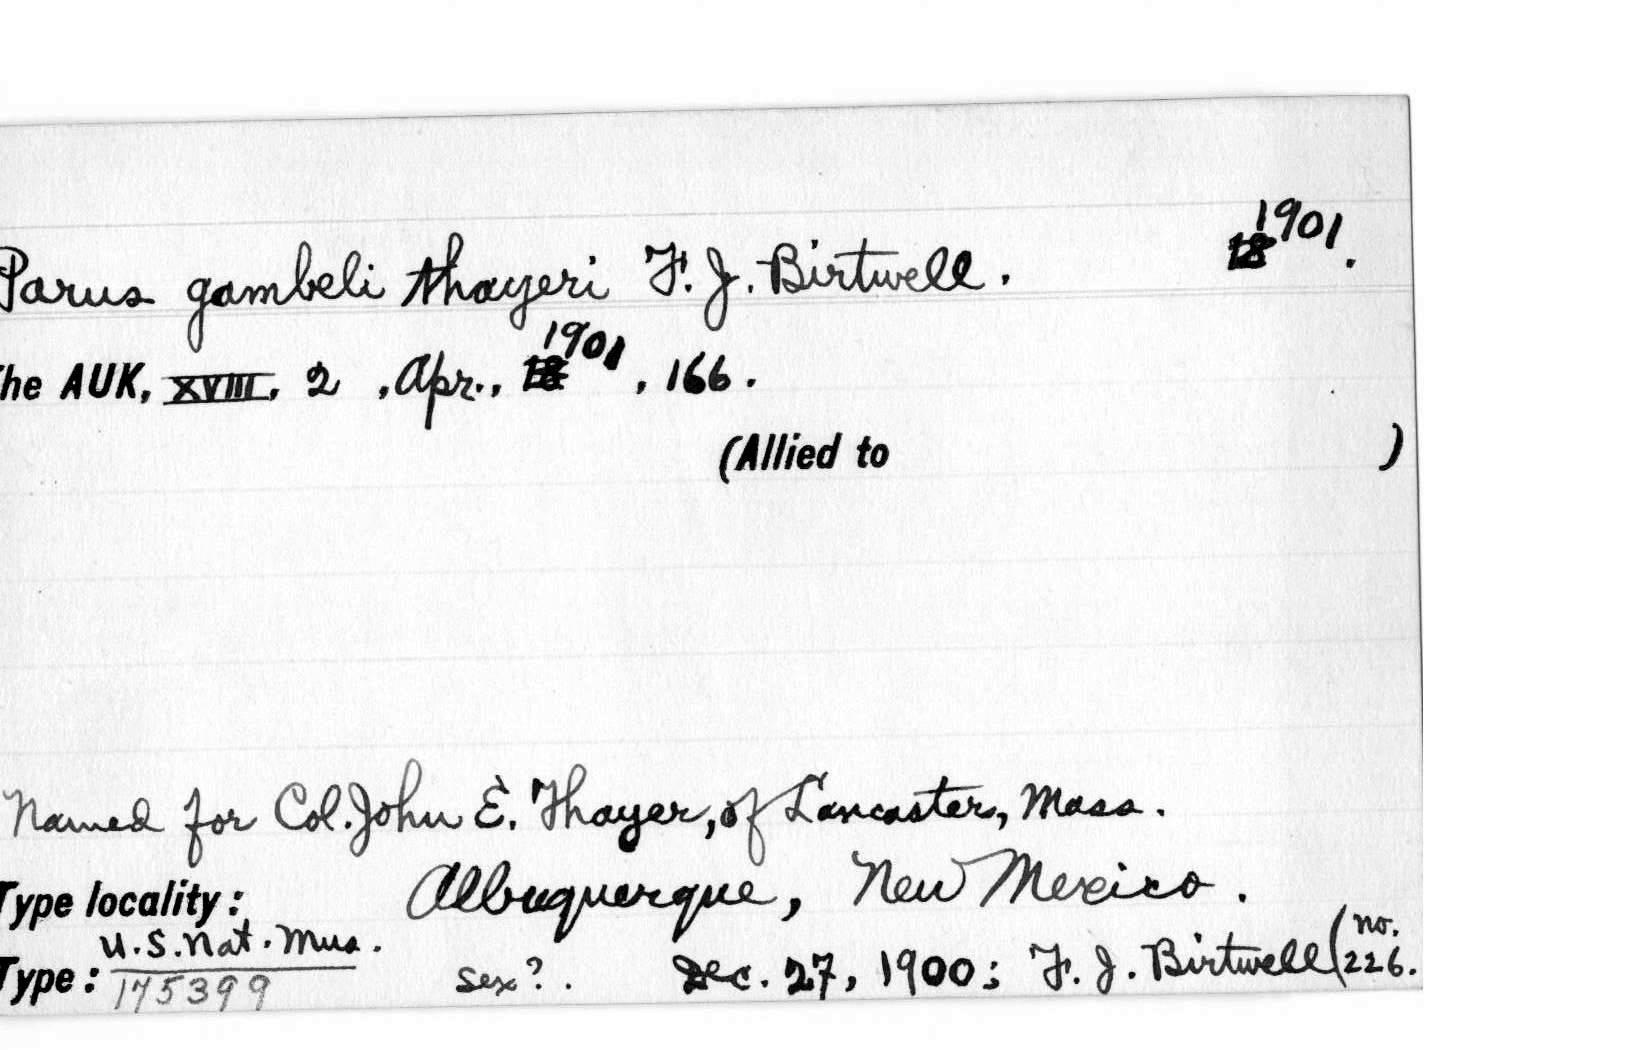 Parus gambeli thayeri F. J. Birtwell. 1901.
The AUK, XVIII, 2, Apr., 1901, 166.
(Allied to )
Named for Col. John E. Thayer, of Lancaster, Mass.
Type locality: Albuquerque, New Mexico.
U.S. Nat. Mus. (no.
Type: 175399 sex?. Dec. 27, 1900; F. J. Birtwell 226.